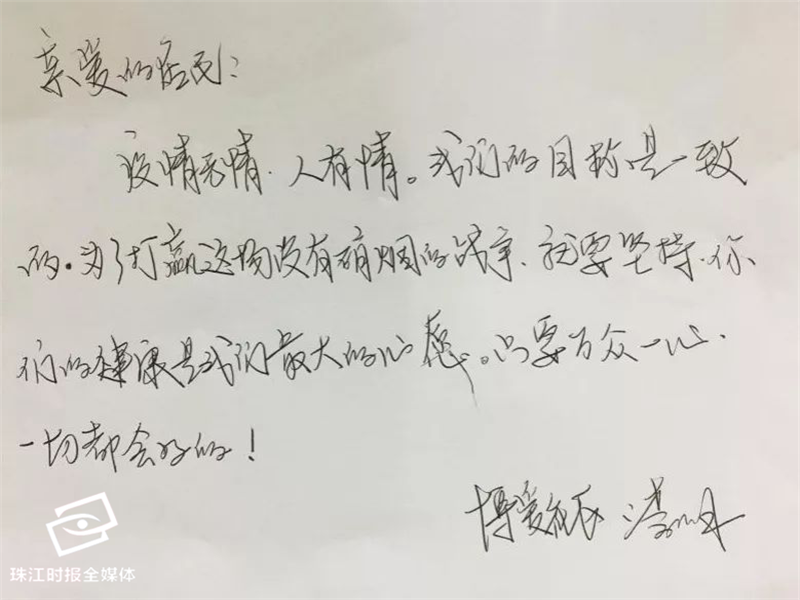 亲爱的居民:
疫情无情.人有情。我们的目标是一致
的.为了打赢这场没有硝烟的战争、就要坚持.你
们的健康是我们最大的心愿。只要万众一心.
一切都会好的!
博爱
珠江时报全媒体